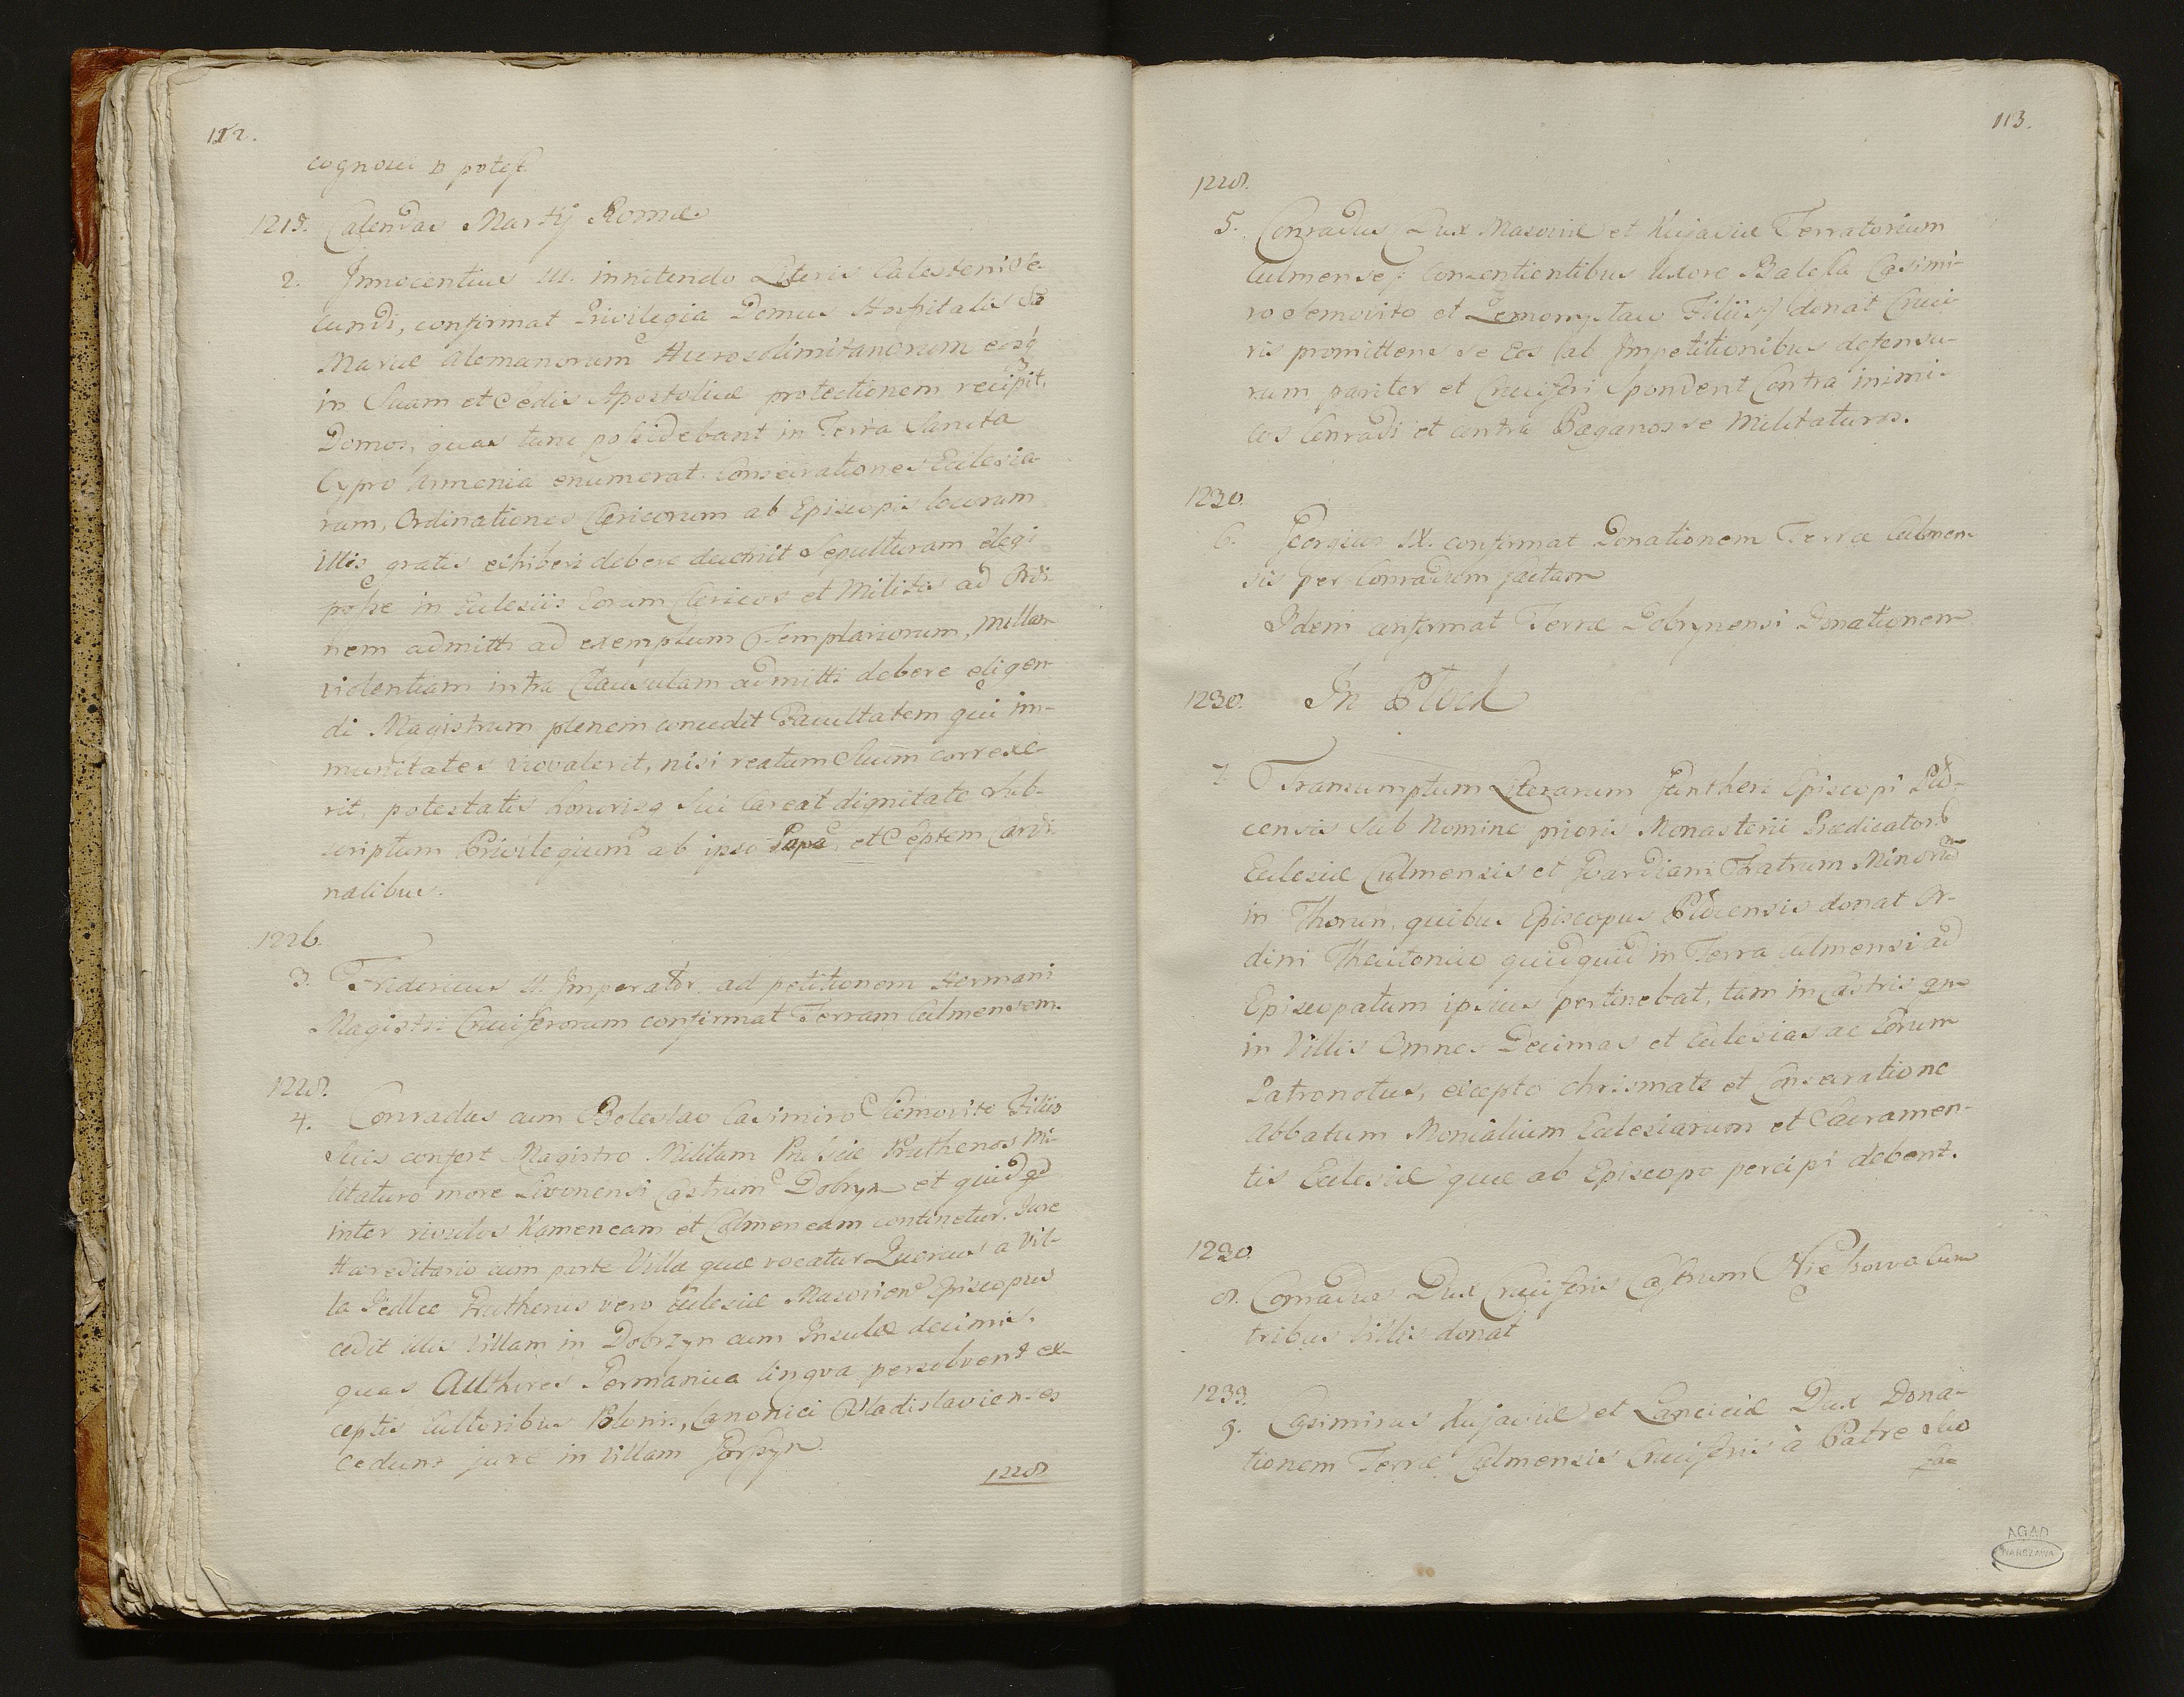 112.
cognosci n potest
1215. Calendas Martij Romæ
2. Innocentius III. innitendo Literis Calestenis Se-
cundi, confirmat Privilegia Domus Hospitalis Stæ
Mariæ Alemanorum Hierosolimitanorum eosq
in Suam et Sedis Apostolicæ protectionem recipit,
Domos, quas tunc possidebant in Terra Sancta
Cypro Armenia enumerat. Consecrationes Ecclesia-
rum, Ordinationes Clericorum ab Episcopis locorum
illis gratis exhiberi debere decernit Sepulturam elegi
posse in Ecclesiis Eorum Clericos et Milites ad Ordi-
nem admitti ad exemplum Templariorum, nullam
violentiam intra Clausulam admitti debere eligen-
di Magistrum plenem concedit Facultatem qui im-
munitates violaverit, nisi reatum Suum correxe-
rit, potestatis honorisq Sui Careat dignitate Sub-
scriptum Privilegium ab ipso Papa, et Septem Cardi-
nalibus.
1226.
3. Fridericus II. Imperator ad petitionem Hermani
Magistri Cruciferorum confirmat Terram Culmensem.
1228.
4. Conradus cum Boleslao Casimiro Siemovito Filiis
Suis confert Magistro Militum Prussiæ Pruthenos mi-
litaturo more Livonensi Castrum Dobryn et quidqd
inter rivulos Kameneam et Culmeneam continetur. Jure
Hæreditario cum parte Villa quæ vocatur Quercus a Vil-
la Siedlce Pruthenus vero Ecclesiæ Masovien Episcopus
cedit illis Villam in Dobrzyn cum Insulæ decimis,
quas Authores Germanica lingva persolvent ex-
ceptis Cultoribus Polonis, Canonici Vladislavienses
cedunt jure in Villam
1228
113.
1228.
5. Conradus Dux Masoviæ et Kujaviæ Terratorium
Culmense /: Consentientibus Uxore Casimi-
ro Semovito et Filiis :/ donat Cruci-
ris promittens se Eos ab Impetitionibus defensu-
rum pariter et Cruciferi Spondent Contra inimi-
cos Conradi et contra Paganos se militaturos.
1230.
6. Georgius IX. confirmat Donationem Terræ Culmen-
sis per Conradum factam
Idem confirmat Terræ Dobrynensi Donationem
1230. In Plock
7. Transumptum Literarum Guntheri Episcopi Plo-
censis Sub Nomine prioris Monasterii Prædicator
Eclesiæ Culmensis et Gvardiani Fratrum Minorum
in Thorun, quibus Episcopus Plocensis donat Or-
dini Theutonico quidquid in Terra Culmensi ad
Episcopatum ipsius pertinebat, tam in Castris qm
in Villis Omnes Decimas et Eclesias ac Eorum
Patronatus, excepto chrismate et Consecratione
Abbatum Monialium Eclesiarum et Sacramen-
tis Eclesiæ quæ ab Episcopo percipi debent.
1230.
8. Conradus Dux Cruciferis Castrum Nieszowa cum
tribus Villis donat
1233.
9. Casimirus Kujaviæ et Lanciciæ Dux Dona-
tionem Terræ Culmensis Cruciferis à Patre Suo
fac
AGAD
WARSZAWA